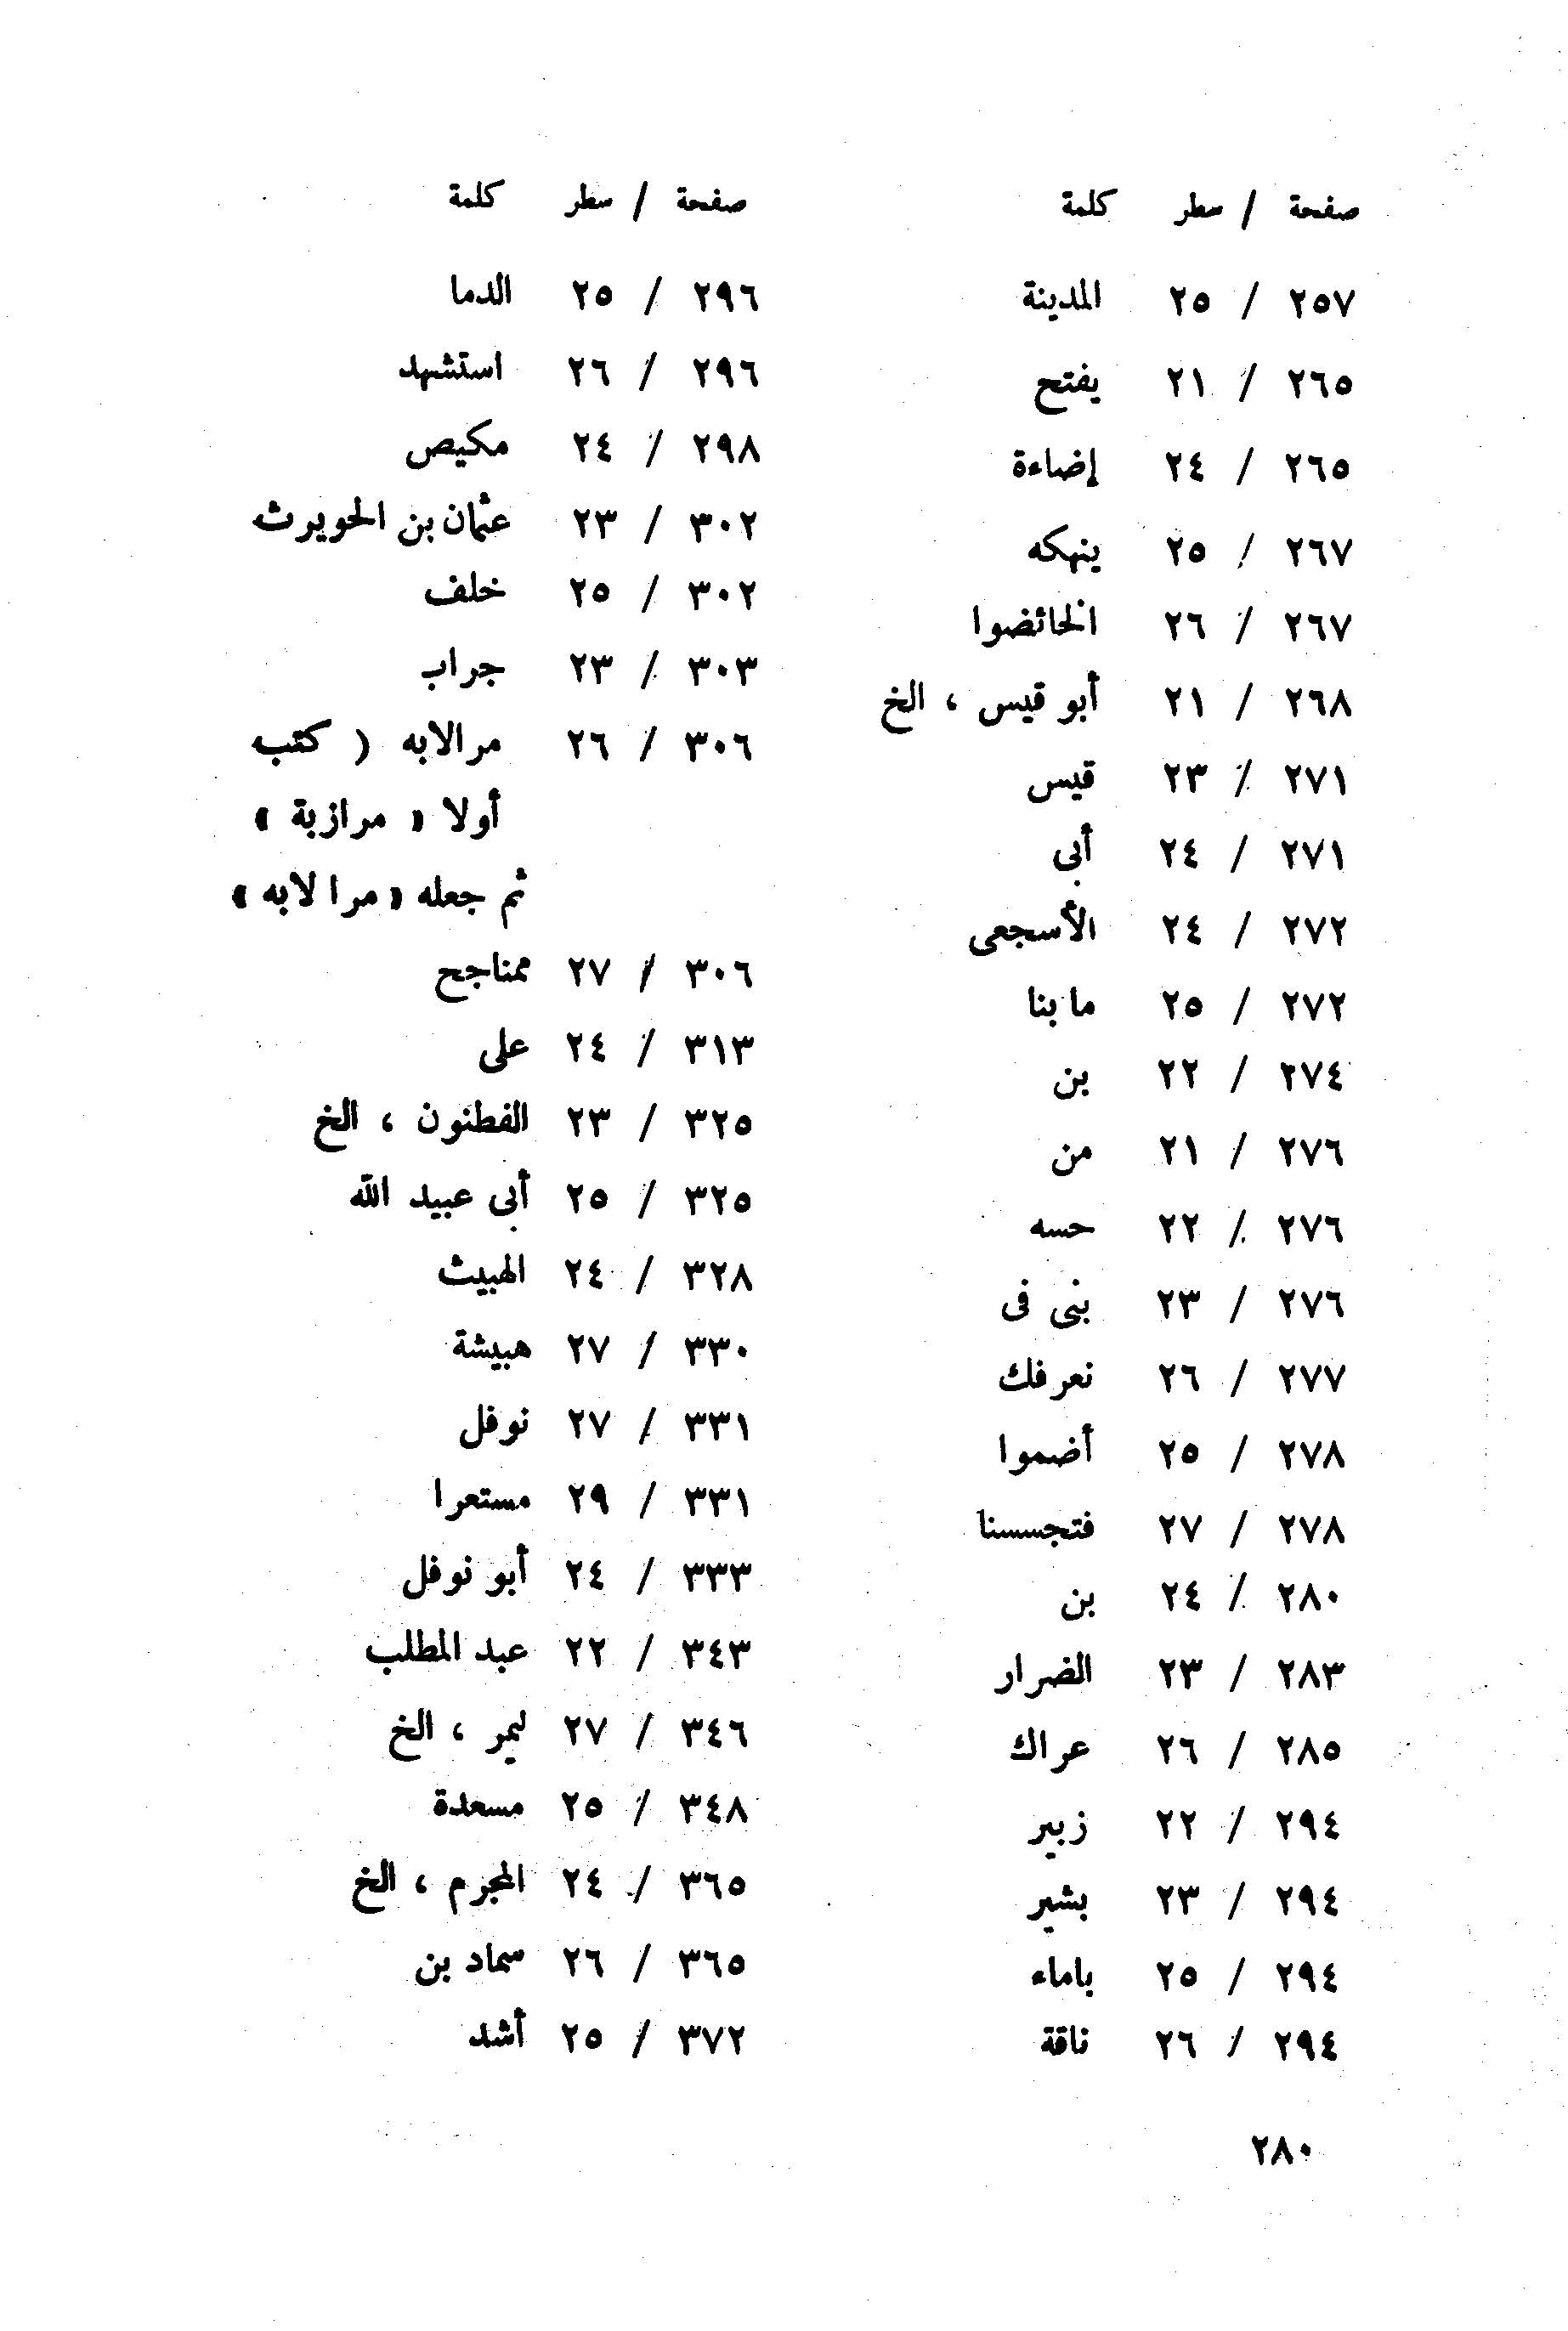 صفحة / سطر كلمة
٢٥٧ / ٢٥ المدينة
٢٦٥ / ٢١ يفتح
٢٦٥ / ٢٤ إضاءة
٢٦٧ / ٢٥ ينهكه
٢٦٧ / ٢٦ الخائضوا
٢٦٨ / ٢١ أبو قيس ، الخ
٢٧١ / ٢٣ قيس
٢٧١ / ٢٤ أبى
٢٧٢ / ٢٤ الأسجعى
٢٧٢ / ٢٥ مابنا
٢٧٤ / ٢٢ بن
٢٧٦ / ٢١ من
٢٧٦ / ٢٢ حسه
٢٧٦ / ٢٣ بنى فى
٢٧٧ / ٢٦ نعرفك
٢٧٨ / ٢٥ أضموا
٢٧٨ / ٢٧ فتجسسنا
٢٨٠ / ٢٤ بن
٢٨٣ / ٢٣ الضرار
٢٨٥ / ٢٦ عراك
٢٩٤ / ٢٢ زبير
٢٩٤ / ٢٣ بشير
٢٩٤ / ٢٥ باماء
٢٩٤ / ٢٦ ناقة
صفحة / سطر كلمة
٢٩٦ / ٢٥ الدما
٢٩٦ / ٢٦ استشهد
٢٩٨ / ٢٤ مكيص
٣٠٢ / ٢٣ عثمان بن الحويرث
٣٠٢ / ٢٥ خلف
٣٠٣ / ٢٣ جراب
٣٠٦ / ٢٦ مرالابه ( كتب
أولا « مرازبة »
ثم جعله « مرا لابه »
٣٠٦ / ٢٧ ممناجح
٣١٣ / ٢٤ على
٣٢٥ / ٢٣ الفطنون ، الخ
٣٢٥ / ٢٥ أبى عبيد الله
٣٢٨ / ٢٤ الهبيث
٣٣٠ / ٢٧ هبيشة
٣٣١ / ٢٧ نوفل
٣٣١ / ٢٩ مستعرا
٣٣٣ / ٢٤ أبو نوفل
٣٤٣ / ٢٢ عبد المطلب
٣٤٦ / ٢٧ ليمر ، الخ
٣٤٨ / ٢٥ مسعدة
٣٦٥ / ٢٤ المجرم ، الخ
٣٦٥ / ٢٦ سماد بن
٣٧٢ / ٢٥ أشد
٢٨٠